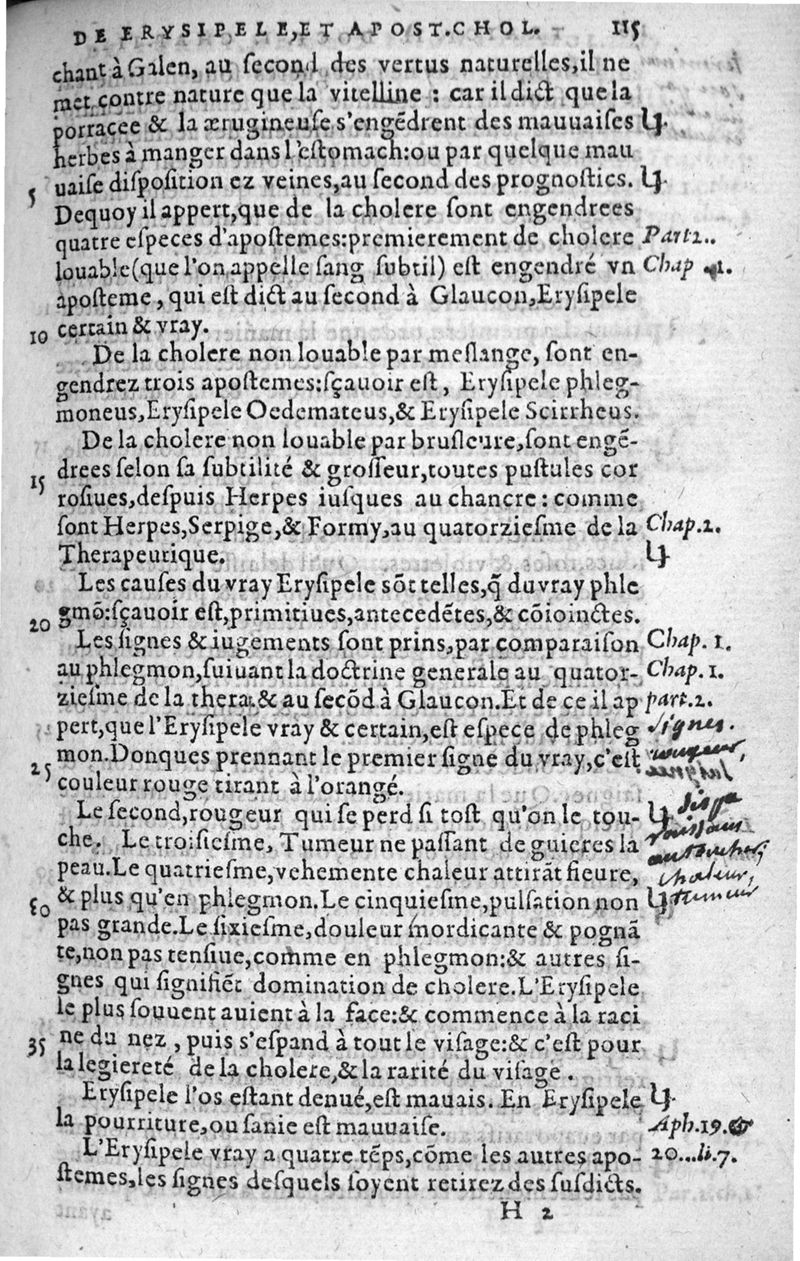 DE ERYSIPELE, ET APOST. CHOL. 115
chant à Galen, au ſecond des vertus naturelles, il ne
met contre nature que la vitelline : car il dict que la
porracee & la ærugineuſe s'engẽdrent des mauuaiſes
herbes à manger dans l'eſtomach: ou par quelque mau
5 uaiſe diſpoſition ez veines, au ſecond des prognoſtics.
Dequoy il appert, que de la cholere ſont engendrees
quatre eſpeces d'apoſtemes: premierement de cholere Part 2..
louable (que l'on appelle ſang ſubtil) eſt engendré vn Chap 1.
apoſteme, qui eſt dict au ſecond à Glaucon, Eryſipele
10 certain & vray.
De la cholere non louable par meſlange, ſont en-
gendrez trois apoſtemes: ſçauoir eſt, Eryſipele phleg-
moneus, Eryſipele Oedemateus, & Eryſipele Scirrheus.
De la cholere non louable par bruſleure, ſont engẽ-
15 drees ſelon ſa ſubtilité & groſſeur, toutes puſtules cor
roſiues, deſpuis Herpes iuſques au chancre : comme
ſont Herpes, Serpige, & Formy, au quatorzieſme de la Chap. 2.
Therapeutique.
Les cauſes du vray Eryſipele sõt telles, q̃ du vray phle
20 gmõ: ſçauoir eſt, primitiues, antecedẽtes, & cõioinctes.
Les ſignes & iugements ſont prins, par comparaiſon Chap. 1.
au phlegmon, ſuiuant la doctrine generale au quator- Chap. 1.
zieſme de la therat. & au ſecõd à Glaucon. Et de ce il ap part. 2.
pert, que l'Eryſipele vray & certain, eſt eſpece de phleg signes.
25 mon. Donques prennant le premier ſigne du vray, c'eſt
couleur rouge tirant à l'orangé.
Le ſecond, rougeur qui ſe perd ſi toſt qu'on le tou-
che. Le troiſieſme, Tumeur ne paſſant de guieres la
peau. Le quatrieſme, vehemente chaleur attirãt fieure, chaleur,
30 & plus qu'en phlegmon. Le cinquieſme, pulſation non tumeur
pas grande. Le ſixieſme, douleur mordicante & pognã
te, non pas tenſiue, comme en phlegmon: & autres ſi-
gnes qui ſignifiẽt domination de cholere. L'Eryſipele
le plus ſouuent auient à la face: & commence à la raci
35 ne du nez, puis s'eſpand à tout le viſage: & c'eſt pour
la legiereté de la cholere, & la rarité du viſage.
Eryſipele l'os eſtant denué, eſt mauais. En Eryſipele
la pourriture, ou ſanie eſt mauuaiſe. Aph. 19. &
L'Eryſipele vray a quatre tẽps, cõme les autres apo- 20... li. 7.
ſtemes, les ſignes deſquels ſoyent retirez des ſuſdicts.
H 2